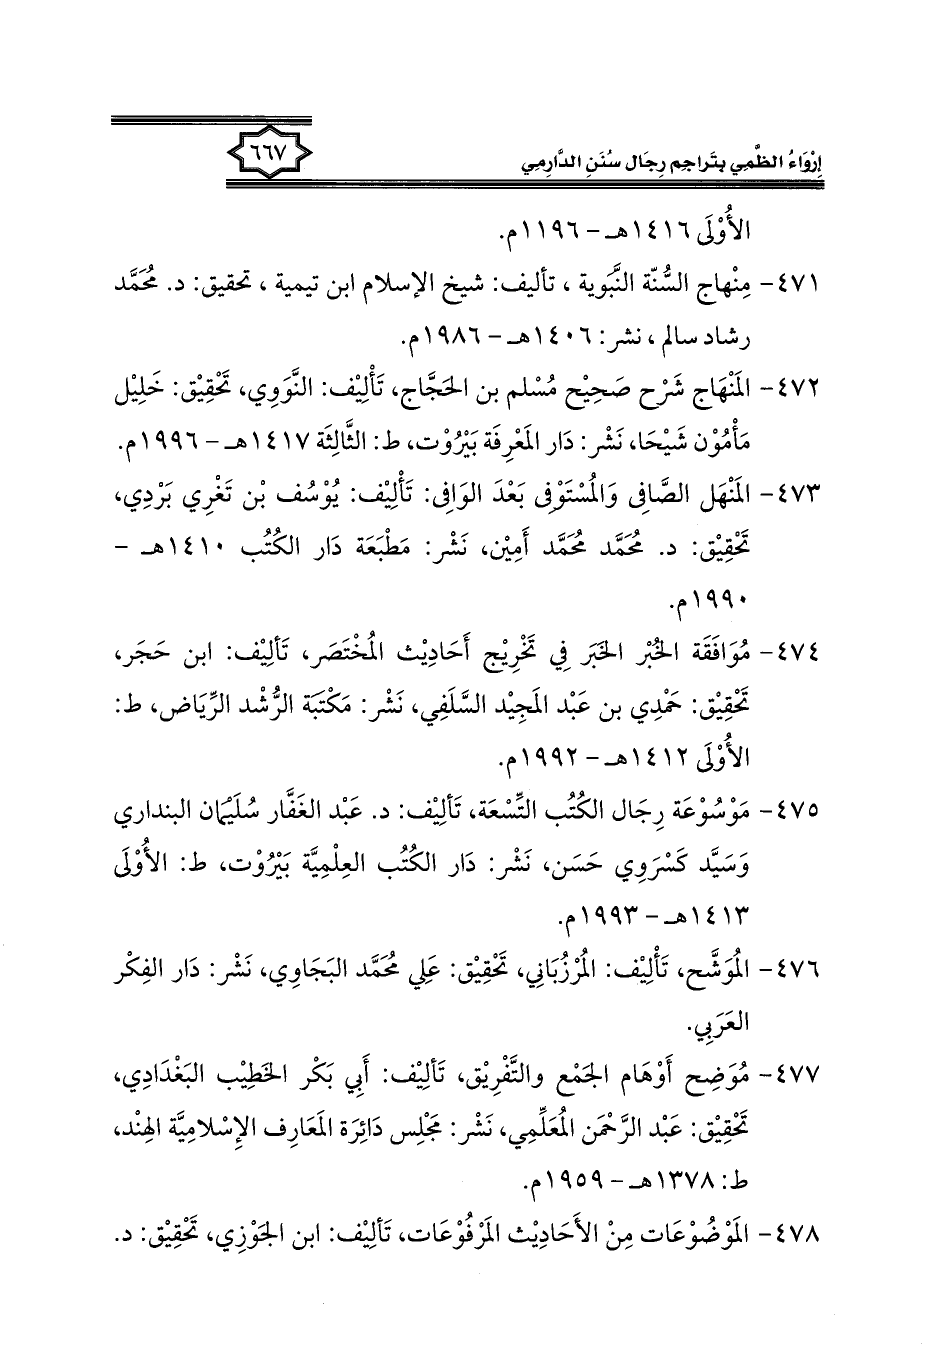 إِرْوَاءُ الظَّمِي بتَراجِم رِجَال سُنَنِ الدَّارِمِي
٦٦٧
الأُوْلَى ١٤١٦هـ - ١١٩٦م.
٤٧١- مِنْهاج السُّنّة النَّبَوية ، تأليف: شيخ الإسلام ابن تيمية ، تحقيق: د. مُحَمَّد
رشاد سالم ، نشر: ١٤٠٦هـ - ١٩٨٦م.
٤٧٢- المَنْهَاج شَرْح صَحِيْح مُسْلم بن الحَجَّاج، تَأْلِيْف: النَّوَوِي، تَحْقِيْق: خَلِيْل
مَأْمُوْن شَيْحَا، نَشْر: دَار المَعْرِفَة بَيْرُوْت، ط: الثَّالِثَة ١٤١٧هـ - ١٩٩٦م.
٤٧٣- المَنْهَل الصَّافِي وَالمُسْتَوْفِي بَعْدَ الوَافِي: تَأْلِيْف: يُوْسُف بْن تَغْرِي بَرْدِي،
تَحْقِيْق: د. مُحَمَّد مُحَمَّد أَمِيْن، نَشْر: مَطْبَعَة دَار الكُتُب ١٤١٠هـ -
١٩٩٠م.
٤٧٤- مُوَافَقَة الخُبْر الخَبَر فِي تَخْرِيْج أَحَادِيْث المُخْتَصَر، تَأْلِيْف: ابن حَجَر،
تَحْقِيْق: حَمْدِي بن عَبْد المَجِيْد السَّلَفِي، نَشْر: مَكْتَبَة الرُّشْد الرِّيَاض، ط:
الأُوْلَى ١٤١٢هـ - ١٩٩٢م.
٤٧٥- مَوْسُوْعَة رِجَال الكُتُب التِّسْعَة، تَأْلِيْف: د. عَبْد الغَفَّار سُلَيْمَان البنداري
وَسَيَّد كَسْرَوِي حَسَن، نَشْر: دَار الكُتُب العِلْمِيَّة بَيْرُوْت، ط: الأُوْلَى
١٤١٣هـ - ١٩٩٣م.
٤٧٦- المُوَشَّح، تَأْلِيْف: المُرْزُبَاني، تَحْقِيْق: عَلِي مُحَمَّد البَجَاوِي، نَشْر: دَار الفِكْر
العَرَبِي.
٤٧٧- مُوَضِح أَوْهَام الجَمْع والتَّفْرِيْق، تَأْلِيْف: أَبِي بَكْر الخَطِيْب البَغْدَادِي،
تَحْقِيْق: عَبْد الرَّحْمَن المُعَلِّمِي، نَشْر: مَجْلِس دَائِرَة المَعَارِف الإِسْلامِيَّة الهِنْد،
ط: ١٣٧٨هـ - ١٩٥٩م.
٤٧٨- المَوْضُوْعَات مِنْ الأَحَادِيْث المَرْفُوْعَات، تَأْلِيْف: ابن الجَوْزِي، تَحْقِيْق: د.